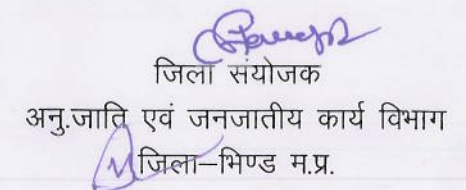 जिला संयोजक
अनु.जाति एवं जनजातीय कार्य विभाग
जिला–भिण्ड म.प्र.